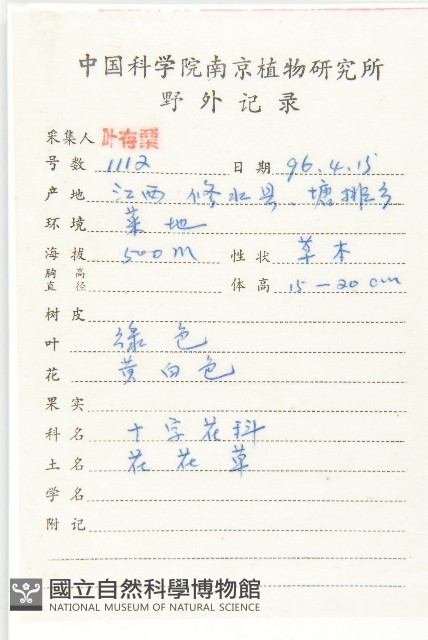 中国科学院南京植物研究所
野外记录
采集人 叶存粟
号数 1112 日期 96.4.15
产地 江西 修水县、塘排乡
环境 菜地
海拔 500m 性状 草本
胸高直径 体高 15-20cm
树皮
叶 绿色
花 黄白色
果实
科名 十字花科
土名 花花草
学名
附记
國立自然科學博物館
NATIONAL MUSEUM OF NATURAL SCIENCE